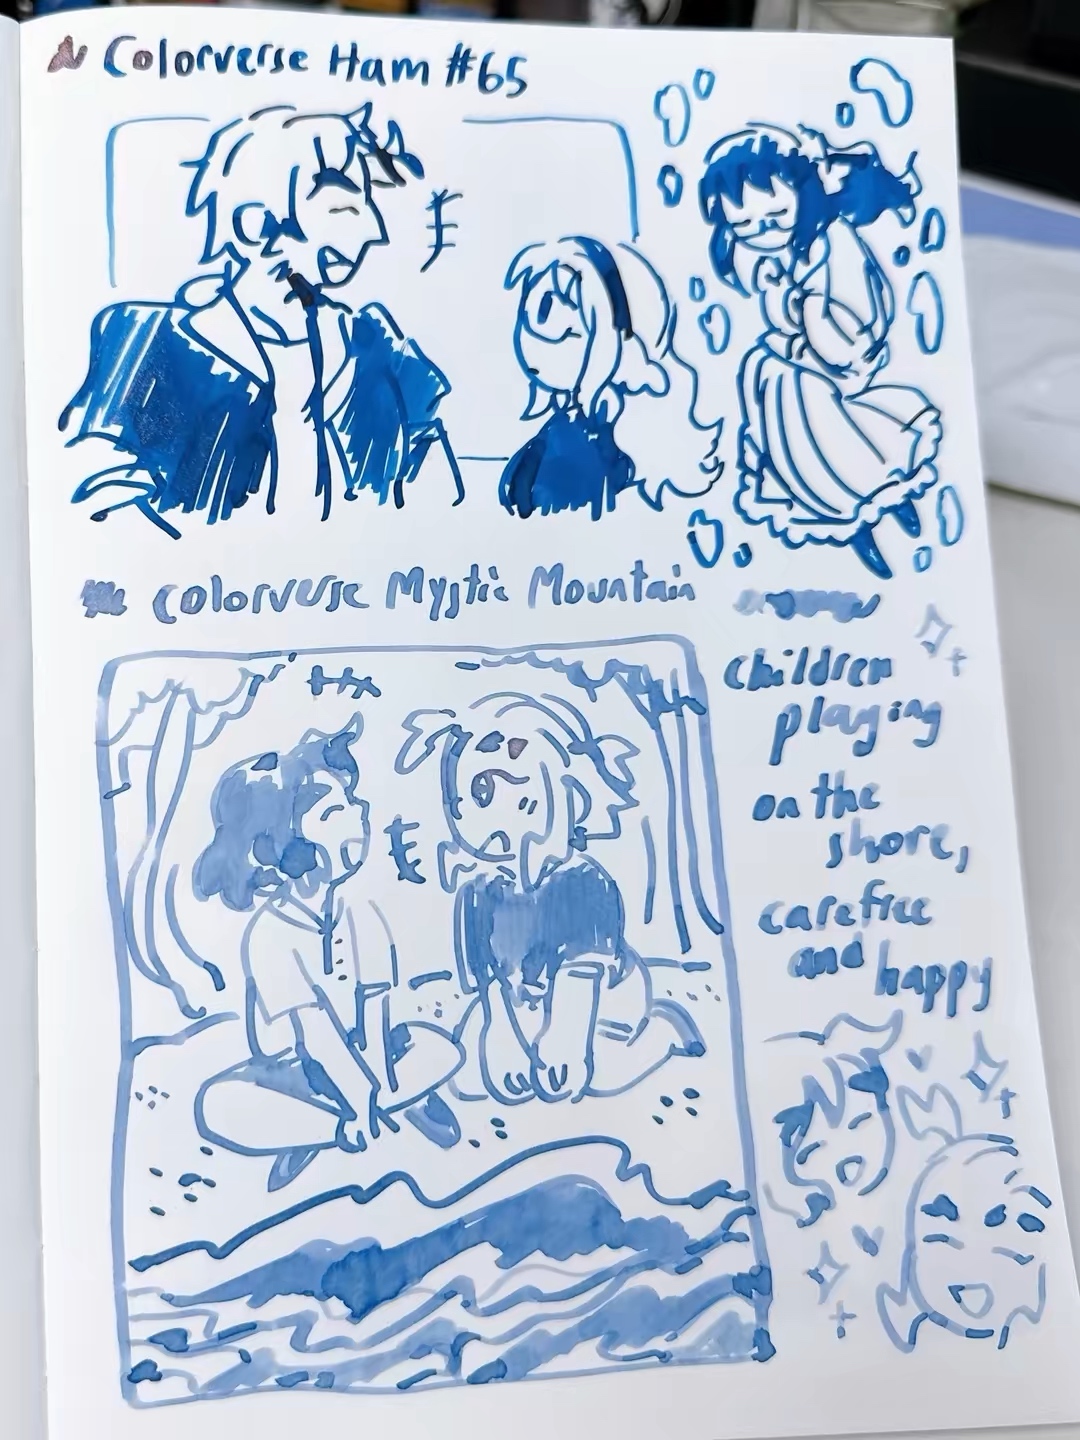 Colorverse Ham #65
Colorverse Mystic Mountain
children
playing
on the
shore,
carefree
and happy